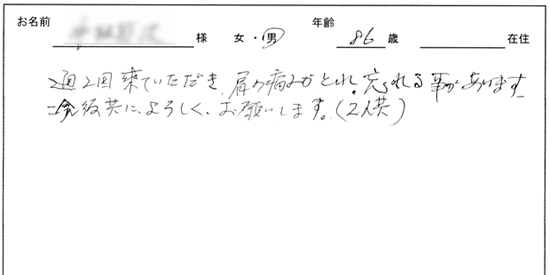 お名前 様 女・男 年齢 86 歳 在住
週2回来ていただき、肩の痛みがとれ、忘れる事があります。
今後共に、よろしく、お願いします。(2人共)